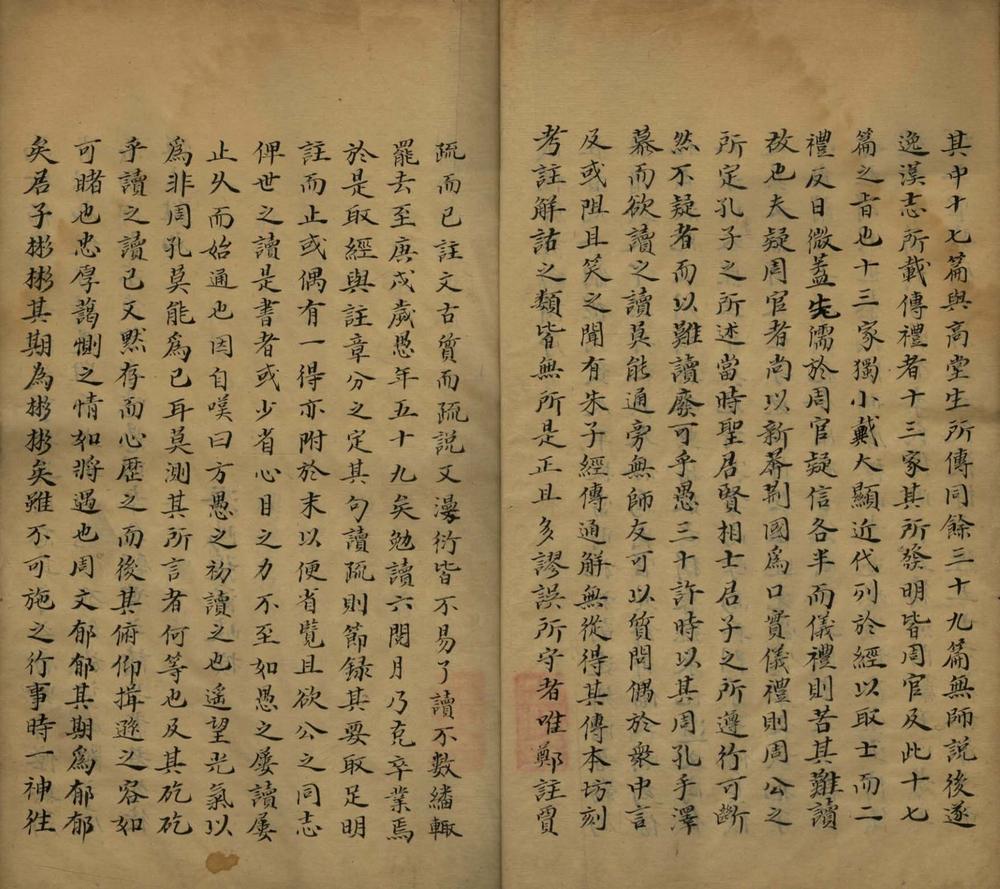 其中十七篇與高堂生所傳同餘三十九篇無師説後遂
逸漢志所載傳禮者十三家其所發明皆周官及此十七
篇之旨也十三家獨小戴大顯近代列於經以取士而二
禮反日微蓋先儒於周官疑信各半而儀禮則苦其難讀
故也夫疑周官者尚以新莽荆國為口實儀禮則周公之
所定孔子之所述當時聖君賢相士君子之所遵行可斷
然不疑者而以難讀廢可乎愚三十許時以其周孔手澤
慕而欲讀之讀莫能通旁無師友可以質問偶於衆中言
及或阻且笑之聞有朱子經傳通解無從得其傳本坊刻
考註解詁之類皆無所是正且多謬誤所守者唯鄭註賈
疏而已註文古質而疏説又漫衍皆不易了讀不數繙輙
罷去至庚戌歲愚年五十九矣勉讀六閱月乃克卒業焉
於是取經與註章分之定其句讀疏則節録其要取足明
註而止或偶有一得亦附於末以便省覧且欲公之同志
俾世之讀是書者或少省心目之力不至如愚之屢讀屢
止久而始通也因自嘆曰方愚之初讀之也遥望光氣以
為非周孔莫能為已耳莫測其所言者何等也及其矻矻
乎讀之讀已又黙存而心歴之而後其俯仰揖遜之容如
可睹也忠厚藹惻之情如將遇也周文郁郁其期為郁郁
矣君子彬彬其期為彬彬矣雖不可施之行事時一神往